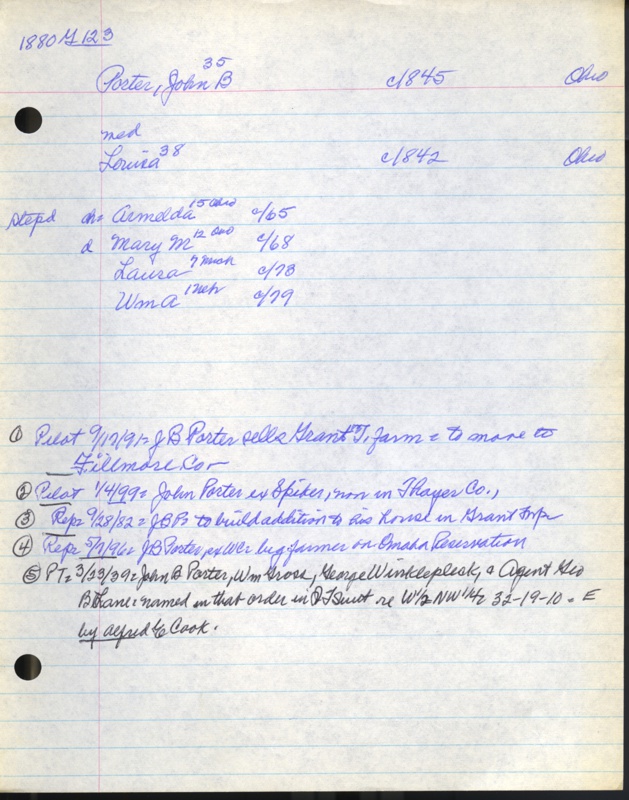 1880 G 123
Porter, John B 35 c/1845 Ohio
med
Louisa 38 c/1842 Ohio
Stepd ch= Armelda 15 Ohio c/65
d Mary M 12 Ohio c/68
Laura 7 Mich c/73
Wm A 1 Neb c/79
① Pilot 9/17/91= J B Porter sells Grant T, farm = to move to
Fillmore Co -
② Pilot 1/4/99= John Porter ex Spiker, now in Thayer Co.,
③ Rep= 9/28/82= JBP= to build addition to his house in Grant Twp
④ Rep= 5/7/96= J B Porter, ex WC= big farmer on Omaha Reservation
⑤ PT= 3/23/39= John B Porter, Wm Gross, George Winklepleck, & Agent Geo
B Lane= named in that order in Q T Suit re W½ NW¼ 32-19-10 = E
by Alfred C Cook.